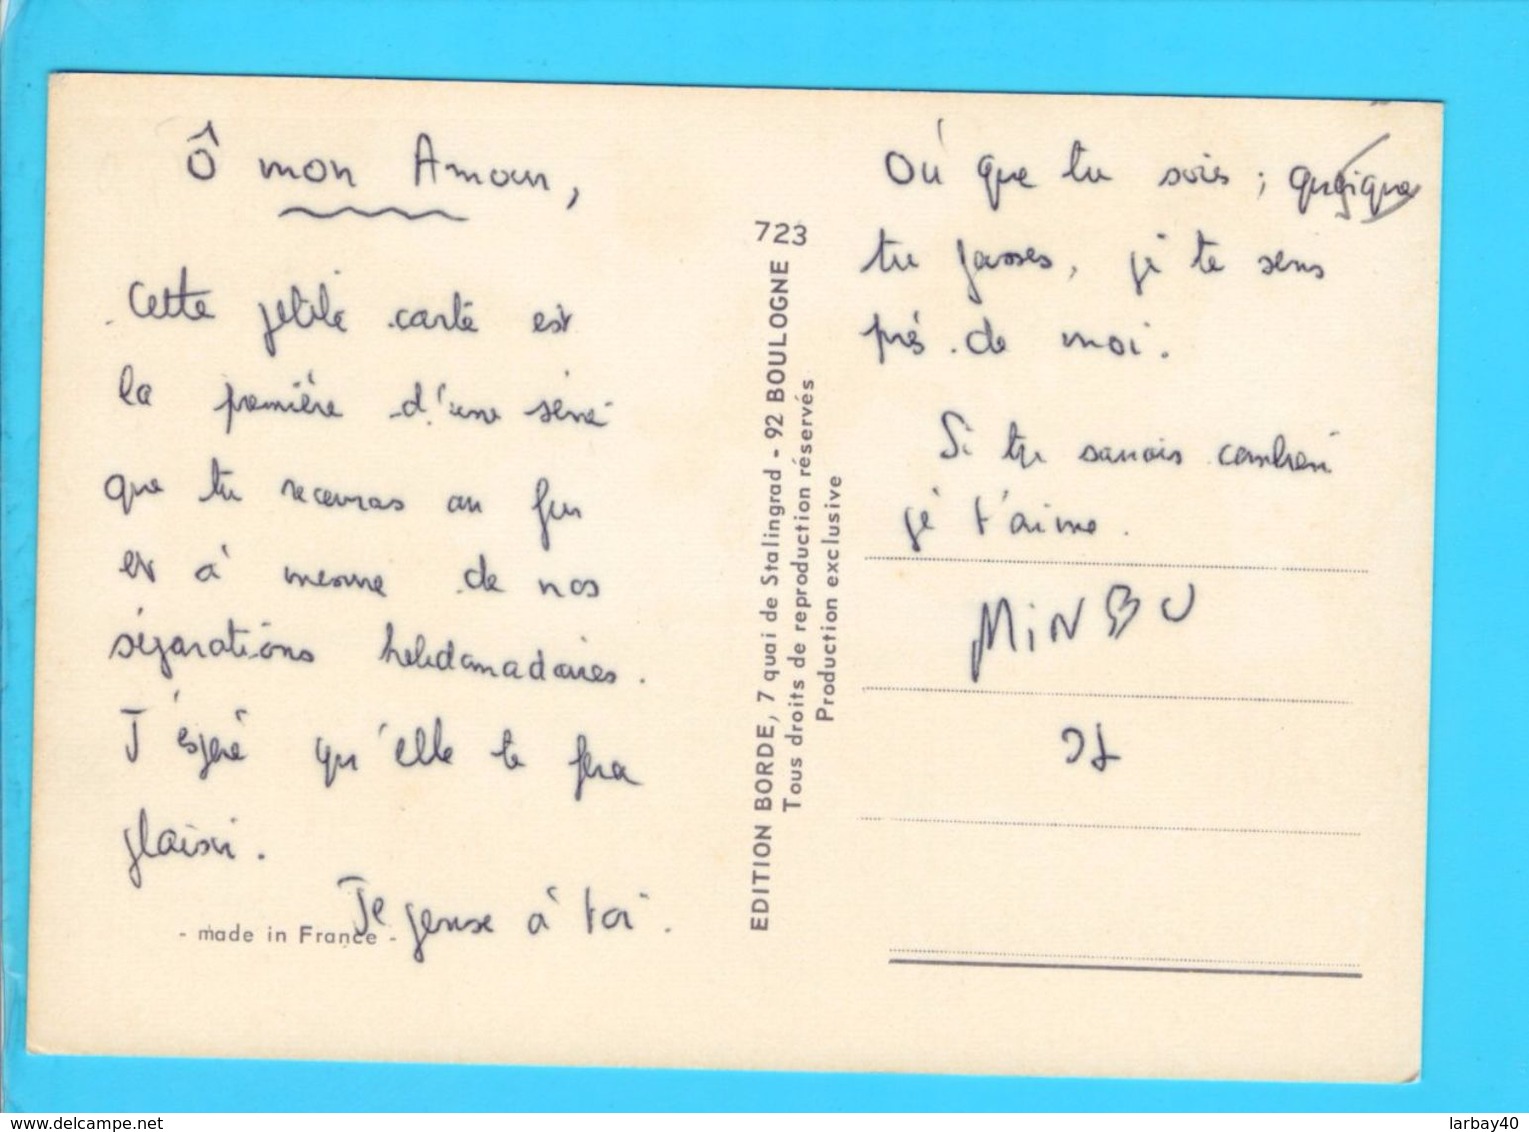 Ô mon Amour,
Cette petite carte est
la première d'une série
que tu recevras au fur
et à mesure de nos
séparations hebdomadaires.
J'espère qu'elle te fera
plaisir.
Je pense à toi.
- made in France -
723
EDITION BORDE, 7 quai de Stalingrad - 92 BOULOGNE
Tous droits de reproduction réservés
Production exclusive
Où que tu sois, quoique
tu fasses, je te sens
près de moi.
Si tu savais combien
je t'aime.
MINBU
delcampe.net
larbay40